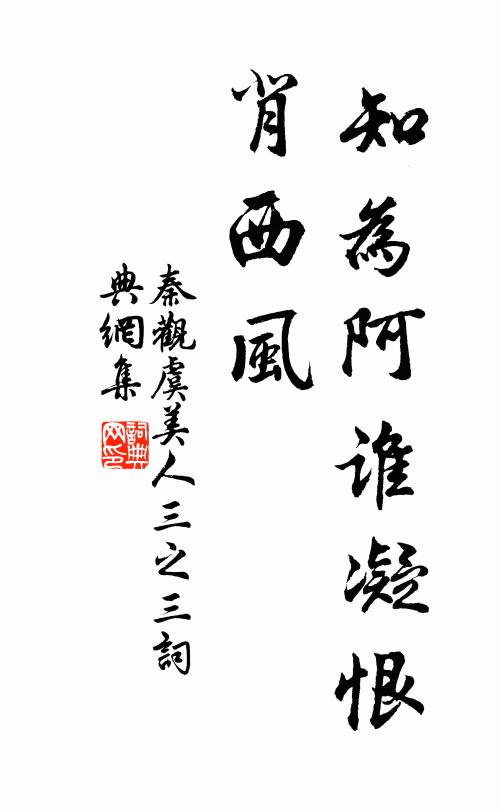 知為阿谁凝恨
背西風
秦觀虞美人三之三詞
典網集
詞典
网印